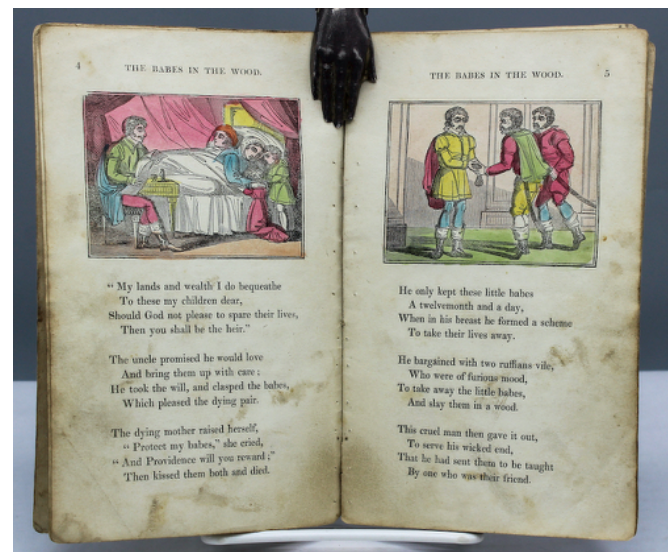 4
THE BABES IN THE WOOD.
“ My lands and wealth I do bequeathe
To these my children dear,
Should God not please to spare their lives,
Then you shall be the heir.”
The uncle promised he would love
And bring them up with care:
He took the will, and clasped the babes,
Which pleased the dying pair.
The dying mother raised herself,
“ Protect my babes,” she cried,
“ And Providence will you reward;”
Then kissed them both and died.
THE BABES IN THE WOOD.
5
He only kept these little babes
A twelvemonth and a day,
When in his breast he formed a scheme
To take their lives away.
He bargained with two ruffians vile,
Who were of furious mood,
To take away the little babes,
And slay them in a wood.
This cruel man then gave it out,
To serve his wicked end,
That he had sent them to be taught
By one who was their friend.